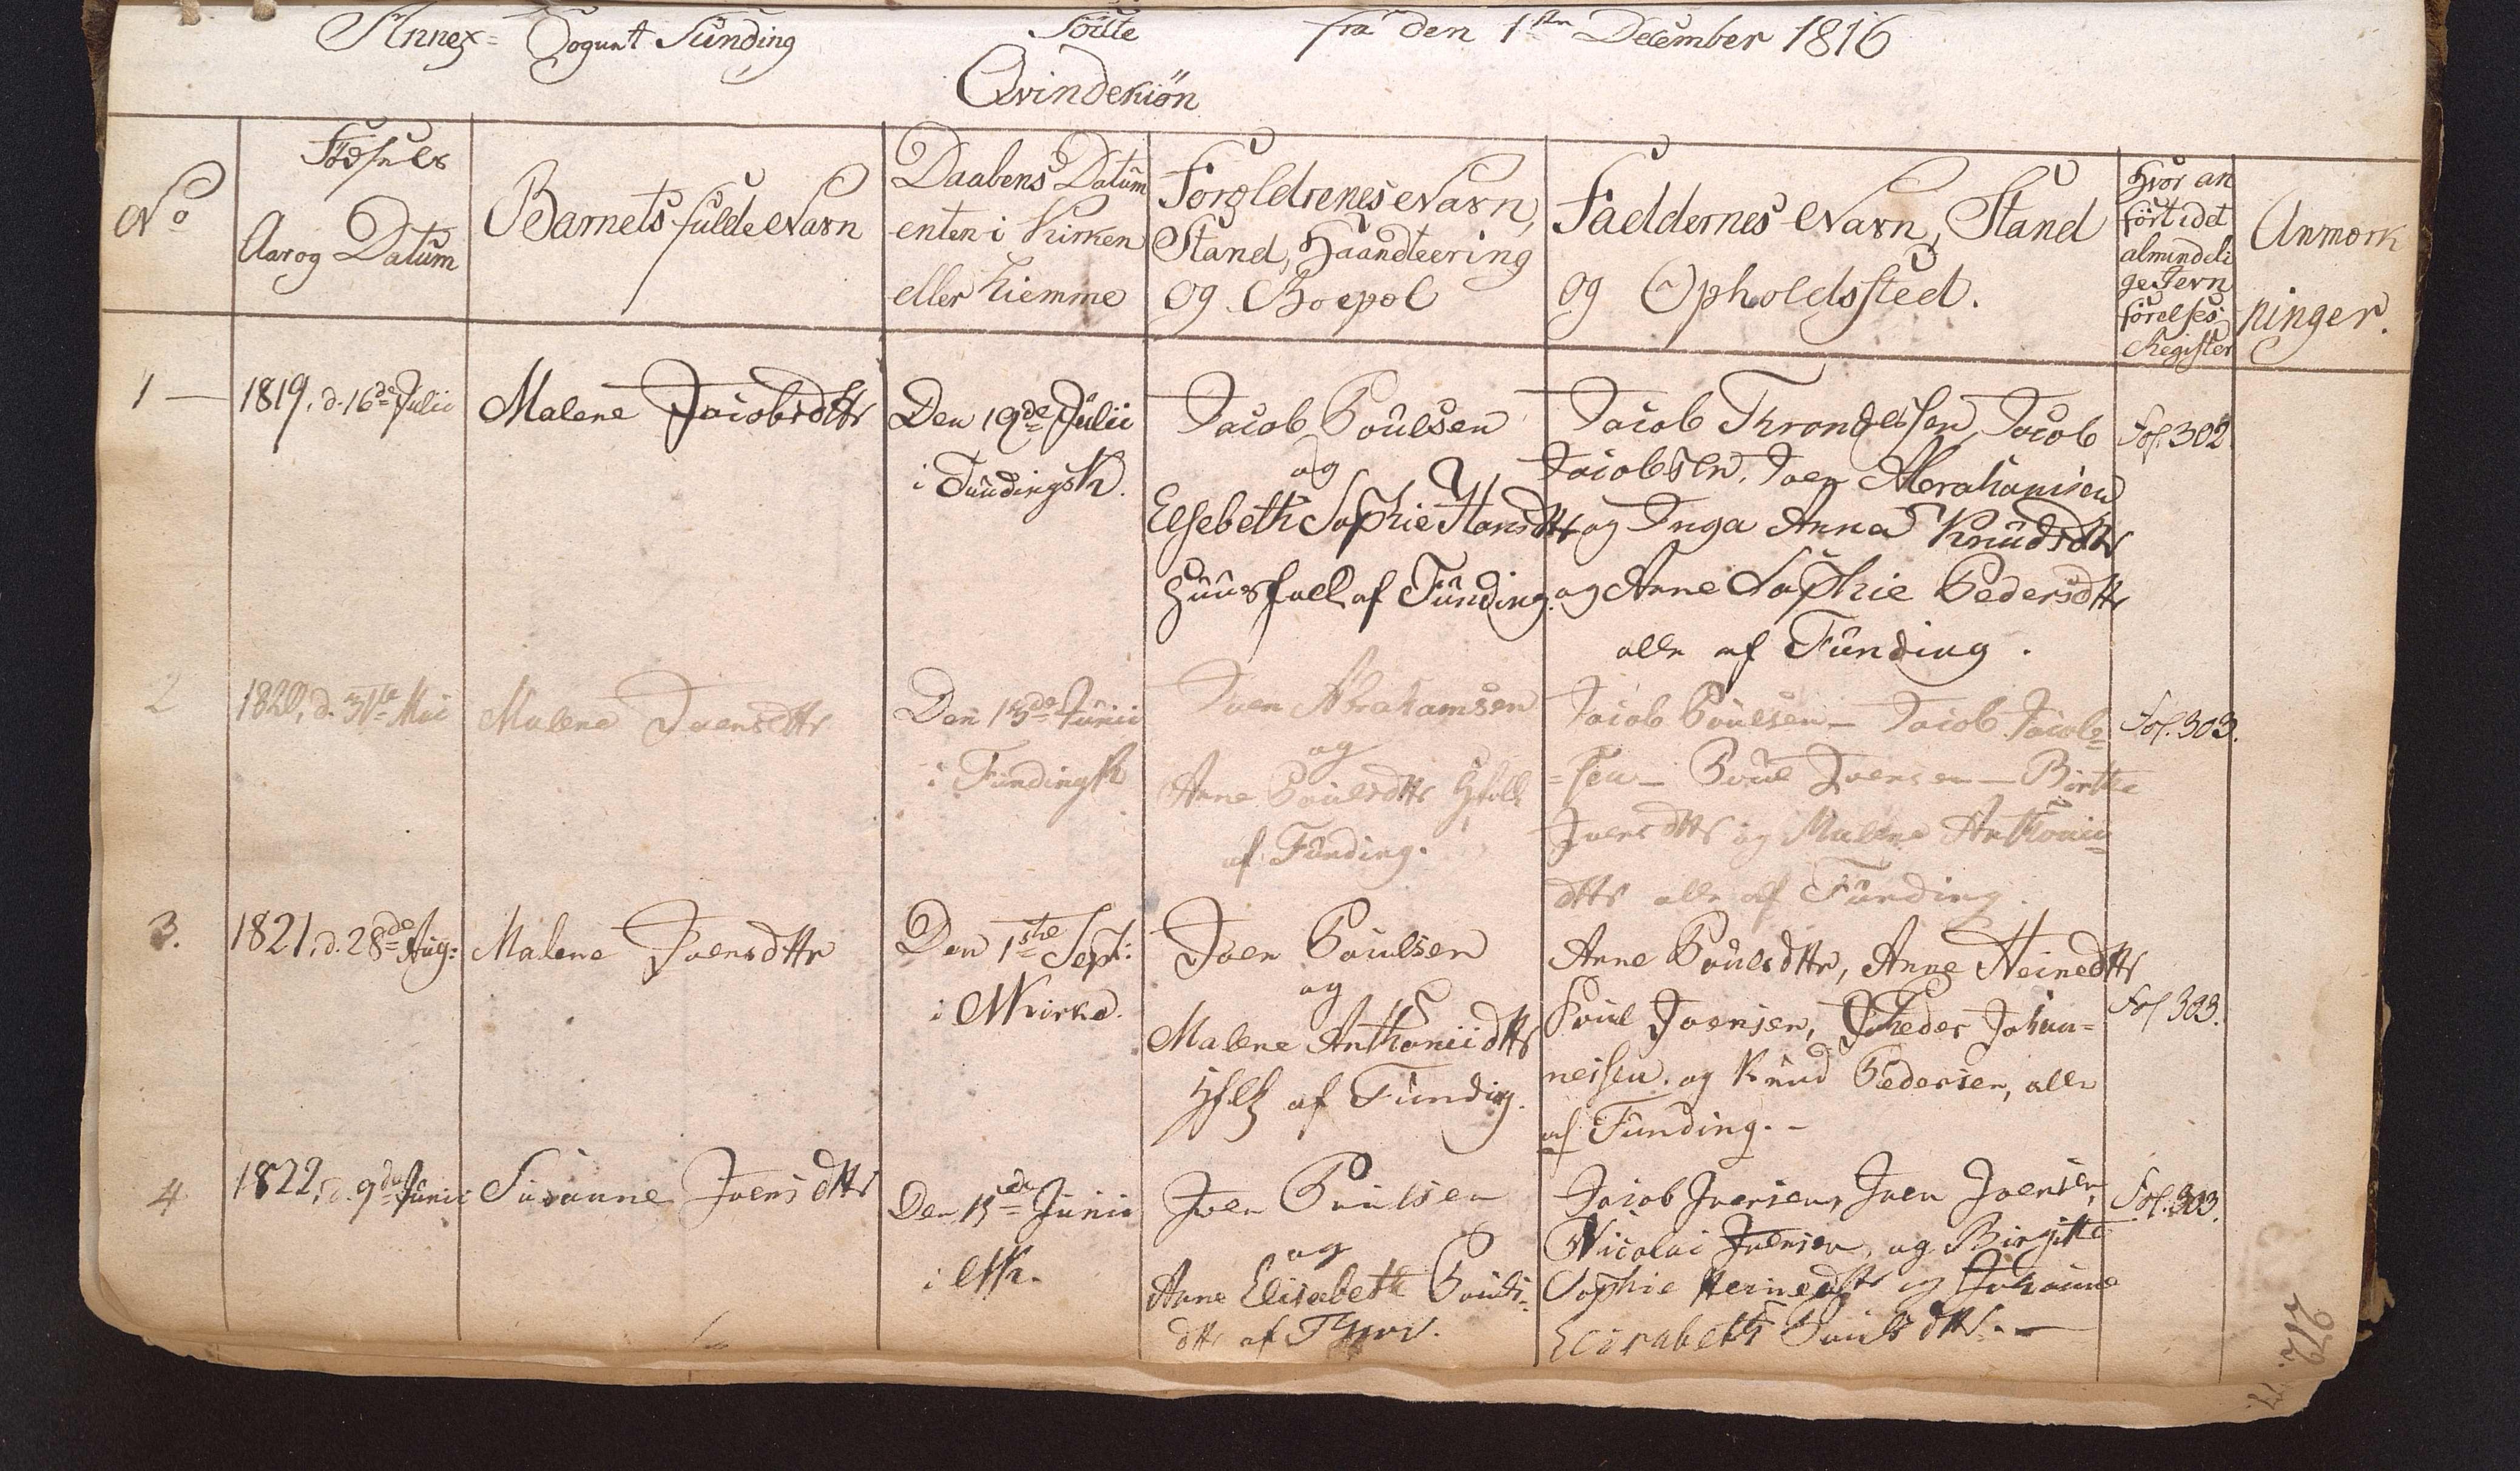 Annex= Sogunt Funding Födte fra den 1ste December 1816
Qvindekiön
No
Födsels
Aar og Datum
Barnets fulde Navn
Daabens Datum
enten i Kirken
eller hiemme
Forældrenes Navn,
Stand, Haandteering
og Boepæl
Faddernes Navn, Stand
og Opholdssted.
Hvor an
fört i det
almindeli
ge Jevn
förelses
Register
Anmærk
ninger.
1 —
1819, d. 16de Julii
Malene Jacobsdttr
Den 19de Julii
i Fundings K.
Jacob Poulsen
og
Elsebeth Sophie Hansdttr
Huusfolk af Funding.
Jacob Throndessen, Jacob
Jacobsen, Joen Abrahamsen
og Inga Anna Knudsdttr
og Anne Sophie Pedersdttr
alle af Funding.
Fol. 302
2
1820, d. 31te Mai
Malene Joensdttr
Den 13de Junii
i Funding K
Joen Abrahamsen
og
Anne Poulsdttr Hfolk
af Funding.
Jacob Poulsen — Jacob Jacob=
=sen — Poul Joensen — Birthe
Joensdttr og Malene Anthonii=
dttr alle af Funding.
Fol. 303.
3.
1821, d. 28de Aug:
Malene Joensdttr
Den 1ste Sept:
i NKirke.
Joen Poulsen
og
Malene Anthoniidttr
Hflk af Funding.
Anne Poulsdttr, Anne Heinedttr
Poul Joensen, Johan=
nessen. og Knud Pedersen, alle
af Funding. -
Fol 303.
4
1822, d. 9de Junii
Susanne Joensdttr
Den 13de Junii
i NK.
Joen Poulsen
og
Anne Elisabeth Pouls=
dttr af
Jacob Joensen, Joen Joensen,
Nicolai Joensen, og Birgitte
Sophie Heinedttr og Johanne
Elisabeth Poulsdttr. —
Fol. 303.